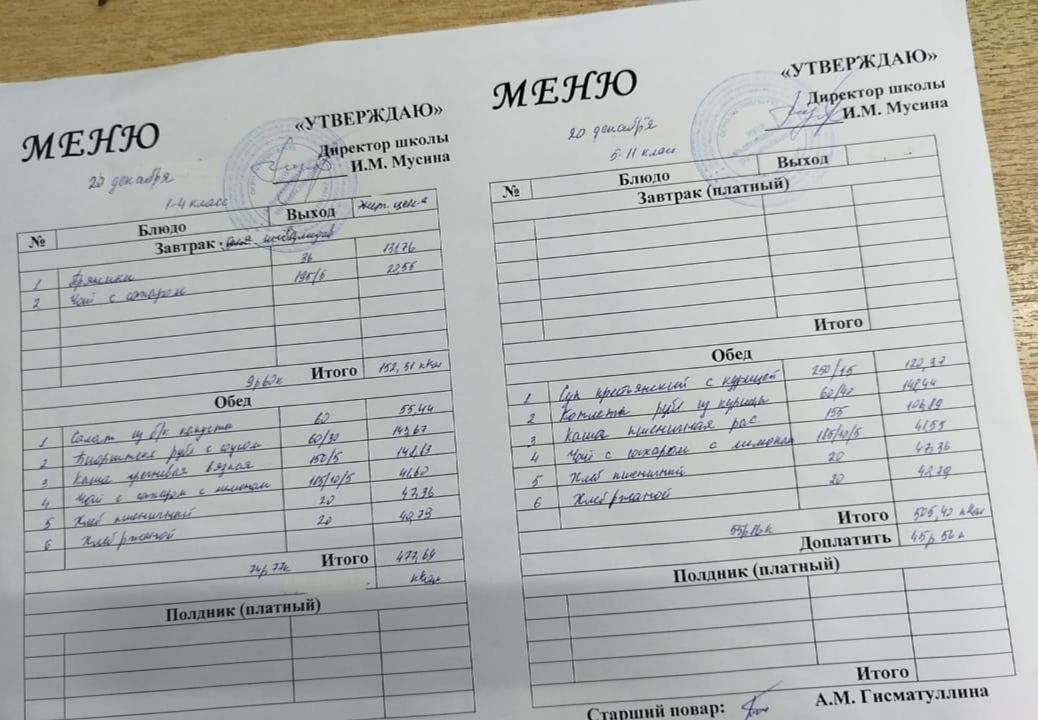 МЕНЮ
«УТВЕРЖДАЮ»
Директор школы
И.М. Мусина
20 декабря
1-4 класс
№ Блюдо Выход
Завтрак инвалидов
1 Пряники 36 131,76
2 Чай с сахаром 195/5 20,55
Итого 152,31 ккал
9р60к
Обед
1 Салат из б/к капусты 60 55,44
2 Бифштекс рубл с соусом 60/30 143,67
3 Каша гречневая вязкая 150/5 148,83
4 Чай с сахаром с лимоном 185/10/5 41,60
5 Хлеб пшеничный 20 47,36
6 Хлеб ржаной 20 40,79
74р77к Итого 477,69
ккал
Полдник (платный)
МЕНЮ
«УТВЕРЖДАЮ»
Директор школы
И.М. Мусина
20 декабря
5-11 класс
№ Блюдо Выход
Завтрак (платный)
Итого
Обед
1 Суп крестьянский с курицей 250/15 120,37
2 Котлета рубл из курицы 60/40
3 Каша пшеничная рас 155
4 Чай с сахаром с лимоном 185/10/5 41,55
5 Хлеб пшеничный 20 47,36
6 Хлеб ржаной 20
Итого 505,40 ккал
Доплатить 45р 56к
Полдник (платный)
Итого
Старший повар: А.М. Гисматуллина